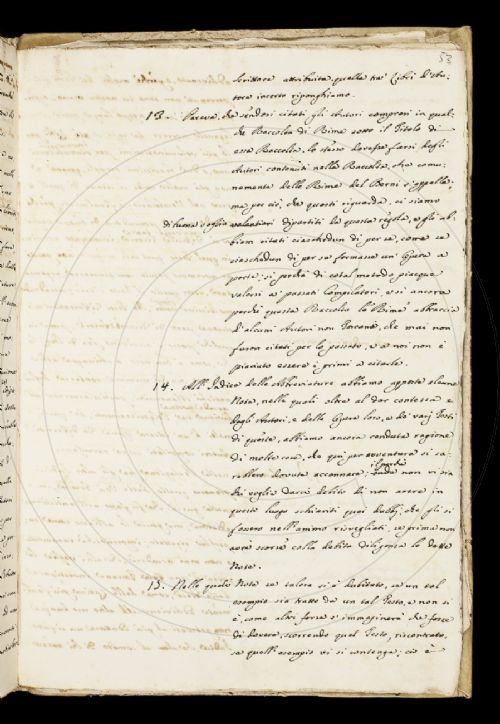 53
scrittore attribuita, quella tra' Libri d'Au-
tore incerto riponghiamo.
13. Pareva, che sendosi citati gli Autori compresi in qual-
che Raccolta di Rime sotto il Titolo di
essa Raccolta, lo stesso dovesse farsi degli
Autori contenuti nella Raccolta, che comu-
nemente delle Rime del Berni s'appella;
ma per ciò, che questi riguarda, ci siamo
di buona voglia dipartiti da questa regola, e gli ab-
biam citati ciascheduno di per se, come se
ciaschedun di per se formasse un' Opera a
parte; sì perchè di cotal metodo piacque
valersi a' passati Compilatori, e sì ancora
perchè questa Raccolta le Rime abbraccia
d'alcuni Autori non Toscani, che mai non
furon citati per lo passato, e a noi non è
piaciuto essere i primi a citarli.
14. All' Indice delle Abbreviature abbiamo apposte alcune
Note, nelle quali, oltre al dar contezza e
degli Autori, e delle Opere loro, e de' varj Testi
di queste, abbiamo ancora renduta ragione
di molte cose, che qui per avventura si sa-
rebbero dovute accennare;
il perchè
non vi sia
chi voglia darci debito di non avere in
questo luogo schiariti quei dubbj, che gli si
fossero nell'animo risvegliati, se prima non
avrà scorse colla debita diligenza le dette
Note.
15. Nelle quali Note se talora si è dubitato, se un tal
esempio sia tratto da un tal Testo, e non si
è, come altri forse s'immaginerà che fosse
di dovere, scorrendo quel Testo, riscontrato,
se quell'esempio vi si contenga; ciò è